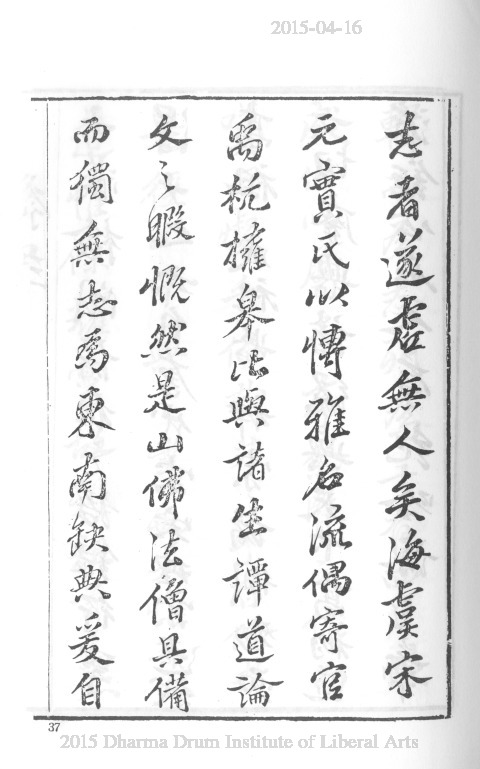 2015-04-16
志者遂虛無人矣海虞宋
元實氏以博雅名流偶寄官
禹杭擁皋比與諸生譚道論
文之暇慨然是山佛法僧具備
而獨無志為東南缺典爰自
37
2015 Dharma Drum Institute of Liberal Arts